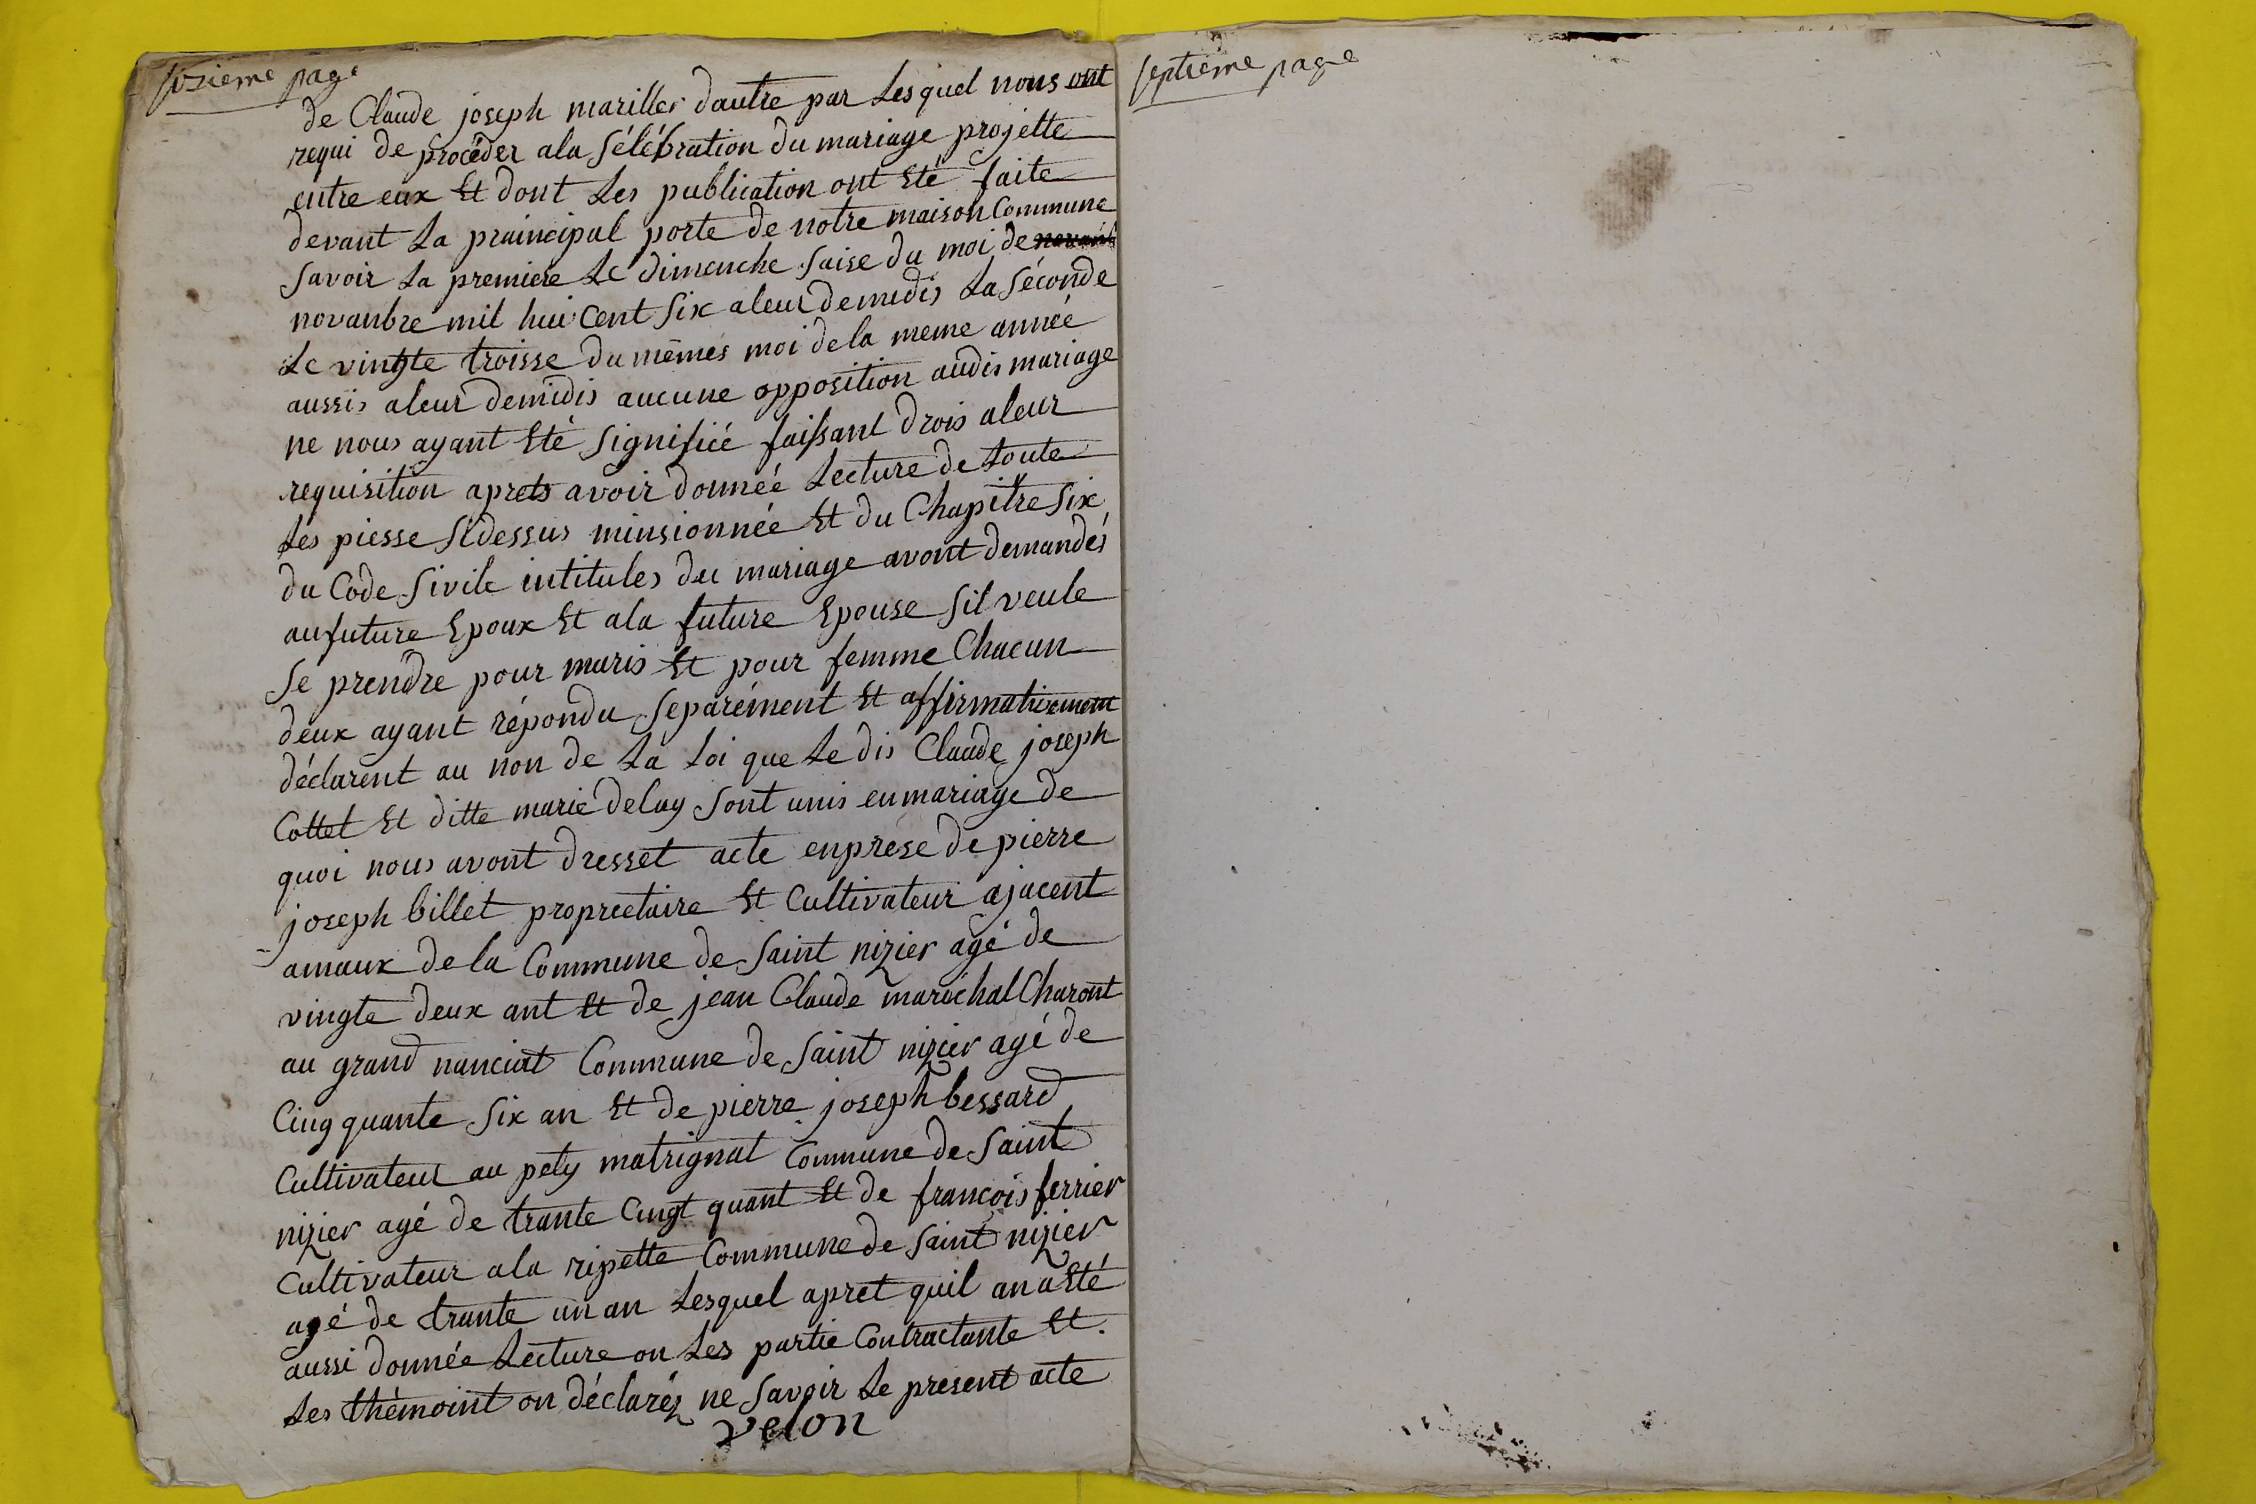 sizieme page
de Claude joseph mariller dautre par Lesquel nous ont
requi de procéder ala sélébration du mariage projette
entre eux Et dont Les publication ont Eté faite
devant La praincipal porte de notre maison Commune
savoir La premiere Le dimenche saise du moi de
novanbre mil hui Cent six aleur demidis La séconde
Le vingte troisse du mêmes moi dela meme année
aussis aleur demidis aucune opposition audis mariage
ne nous ayant Eté signifiée faissant drois aleur
requisition aprets avoir donnéé Lecture de toute
Les piesse sidessus minsionnée Et du Chapitre six
du Code sivile intitules du mariage avont demandés
aufuture Epoux Et ala future Epouse sil veule
se prendre pour maris Et pour femme Chacun
deux ayant répondu separément Et affirmativement
déclarent au non de La Loi que Le dis Claude joseph
Cottet Et ditte marie delay sont unis enmariage de
quoi nous avont dresset acte enprese de pierre
joseph billet propreetaire Et Cultivateur ajacent
amaux de la Commune de saint nizier agé de
vingte deux ant Et de jean Claude maréchal Charont
au grand nanciat Commune de saint nizier agé de
Cinq quante six an Et de pierre joseph bessard
Cultivateur au pety matrignat Commune de saint
nizier agé de trante Cingt quant Et de francois ferrier
Cultivateur ala ripette Commune de saint nizier
agé de trante un an Lesquel apret quil an a Eté
aussi donnée Lecture on Les partie Contractante Et
Les thémoint on déclaréz ne savoir Le present acte
velon
septieme page